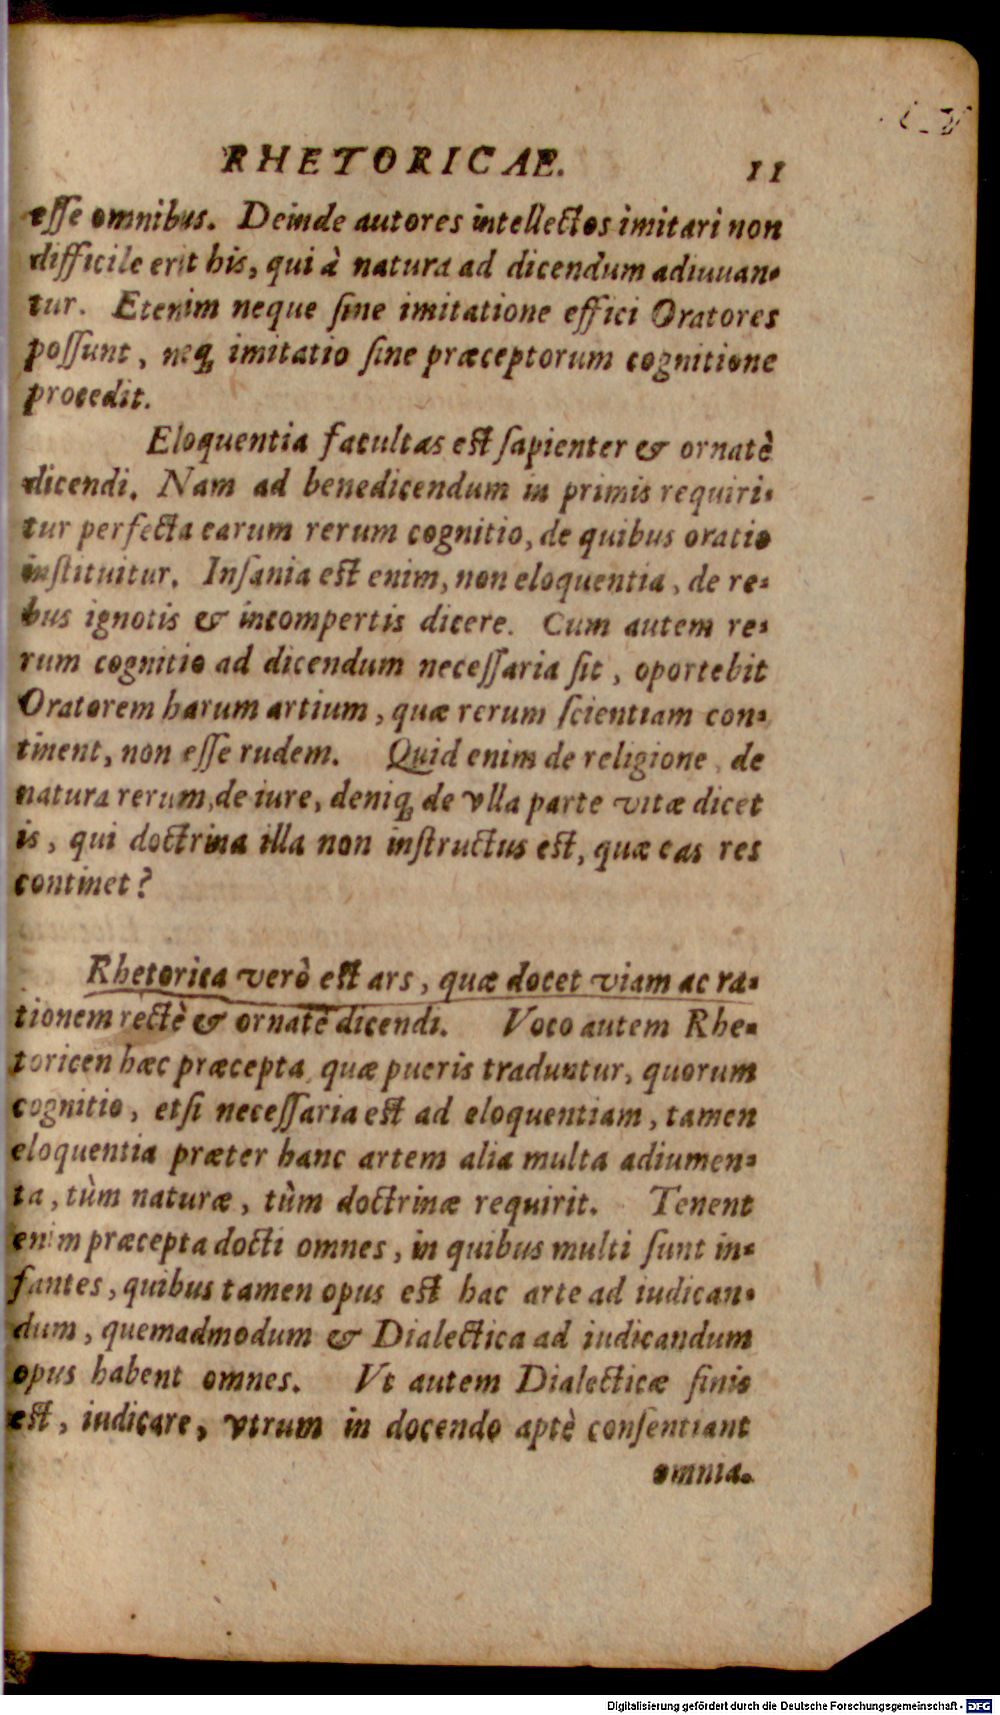 RHETORICAE. 11
eſſe omnibus. Deinde autores intellectos imitari non
difficile erit his, qui à natura ad dicendum adiuuan-
tur. Etenim neque ſine imitatione effici Oratores
poſſunt, neq́; imitatio ſine præceptorum cognitione
procedit.
Eloquentia facultas est ſapienter & ornatè
dicendi. Nam ad benedicendum in primis requiri-
tur perfecta earum rerum cognitio, de quibus oratio
inſtituitur. Inſania est enim, non eloquentia, de re-
bus ignotis & incompertis dicere. Cum autem re-
rum cognitio ad dicendum neceſſaria ſit, oportebit
Oratorem harum artium, quæ rerum ſcientiam con-
tinent, non eſſe rudem. Quid enim de religione, de
natura rerum, de iure, deniq́; de vlla parte vitæ dicet
is, qui doctrina illa non inſtructus est, quæ eas res
continet?
Rhetorica verò est ars, quæ docet viam ac ra-
tionem rectè & ornatè dicendi. Voco autem Rhe-
toricen hæc præcepta, quæ pueris traduntur, quorum
cognitio, etſi neceſſaria est ad eloquentiam, tamen
eloquentia præter hanc artem alia multa adiumen-
ta, tùm naturæ, tùm doctrinæ requirit. Tenent
enim præcepta docti omnes, in quibus multi ſunt in-
fantes, quibus tamen opus est hac arte ad iudican-
dum, quemadmodum & Dialectica ad iudicandum
opus habent omnes. Vt autem Dialecticæ finis
est, iudicare, vtrum in docendo aptè conſentiant
omnia.
Digitalisierung gefördert durch die Deutsche Forschungsgemeinschaft - DFG